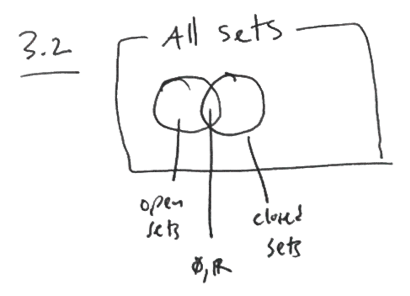 3.2
All sets
open
sets
closed
sets
∅, ℝ